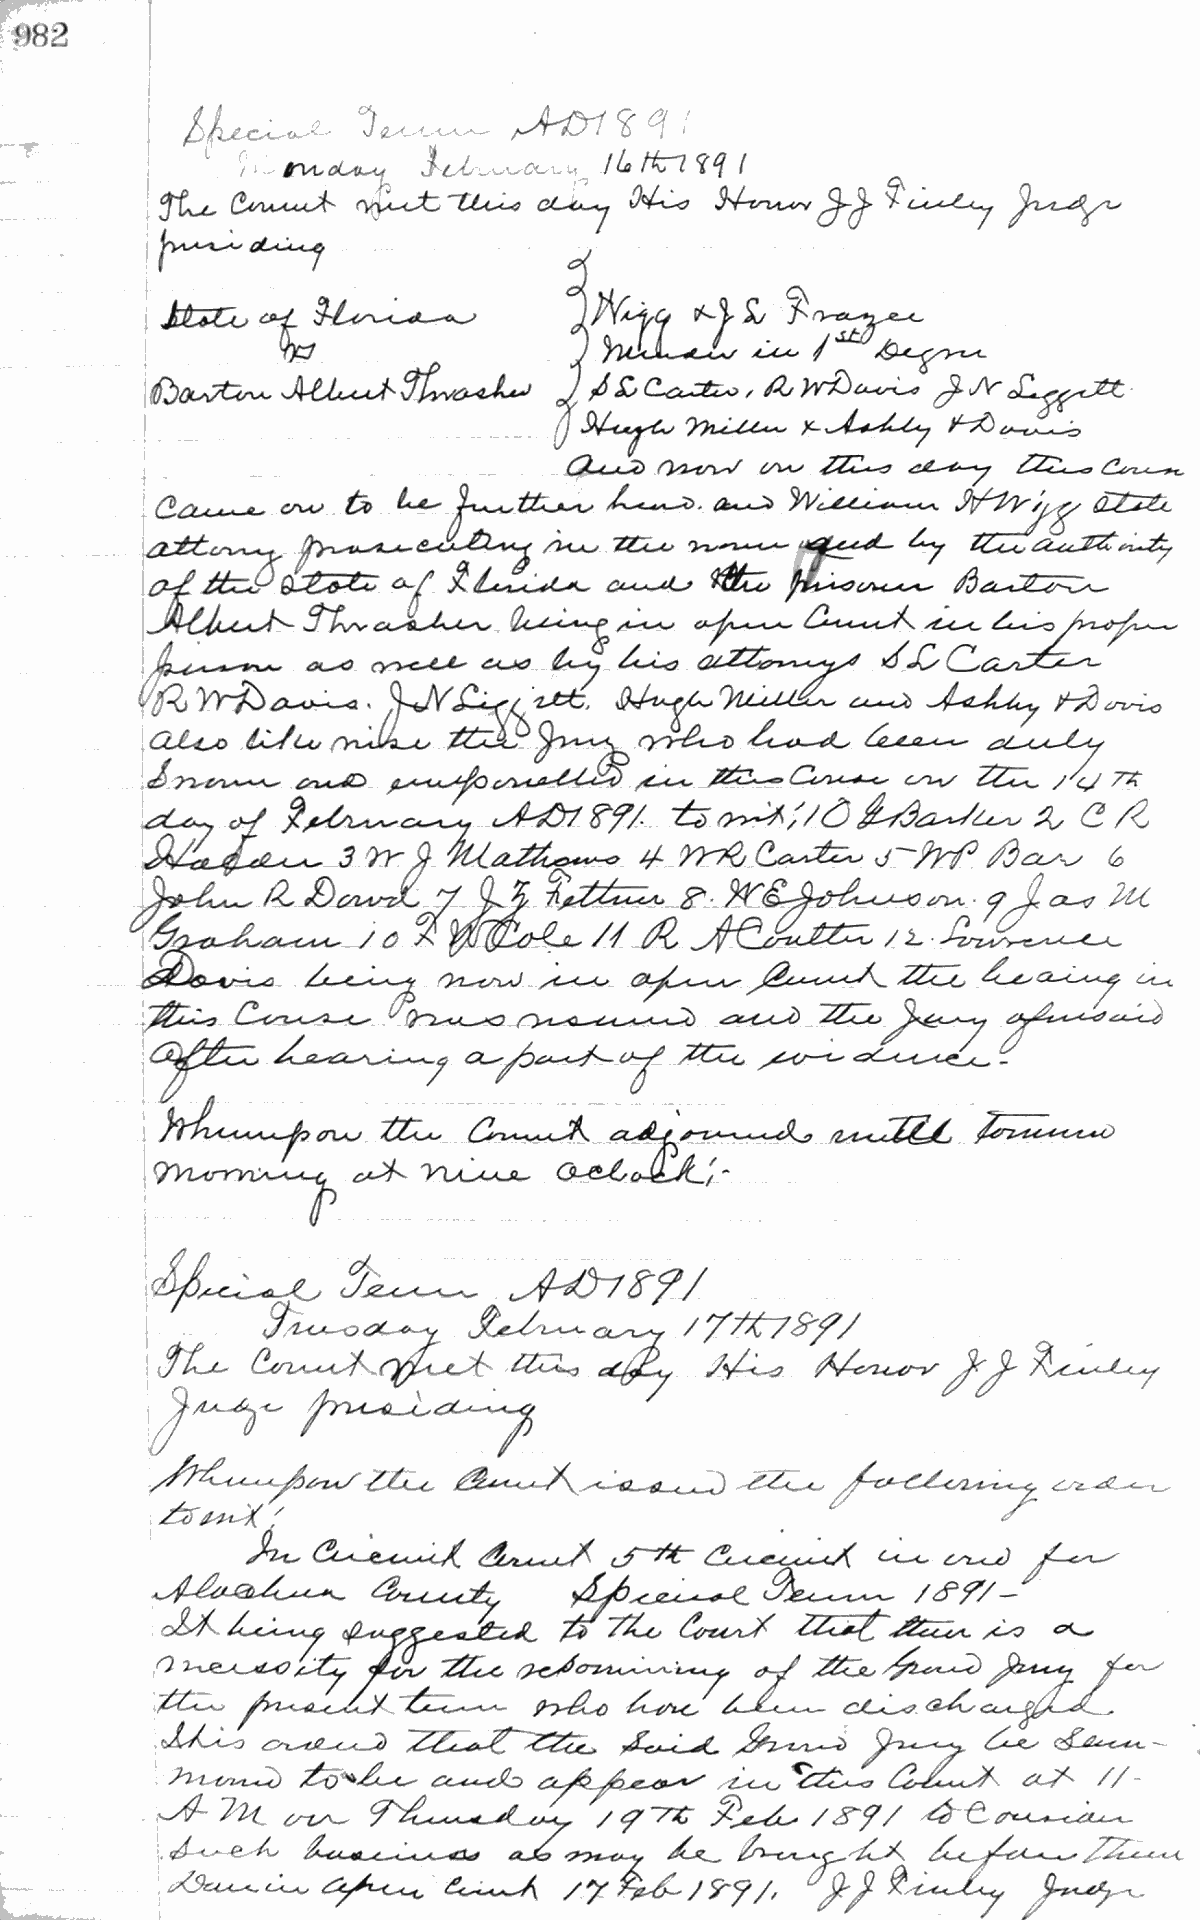 982
Special Term AD 1891
Monday February 16th 1891
The Court met this day His Honor J J Finley Judge
presiding
State of Florida
vs
Barton Albert Thrasher
Wigg & J L Frazee
Murder in 1st Degree
S L Carter, R W Davis J N Liggett
Hugh Miller & Ashby & Davis
And now on this day this Cause
Came on to be further heard. and William H Wigg State
attorny prosecuting in the name and by the authority
of the State of Florida and the prisoner Barton
Albert Thrasher being in open Court in his proper
person as well as by his attornys S L Carter
R W Davis. J N Liggett. Hugh Miller and Ashby & Davis
also like wise the Jury who had been duly
Sworn and empanelled in this Cause on the 14th
day of February AD 1891. to wit; 1 O G Barker 2 C R
3 W J Mathews 4 W R Carter 5 W P Barr 6
John R Dowd 7 J Z Fettner 8. W E Johnson. 9 Jas M
Graham 10 F W Cole 11 R A Coulter 12. Lawrence
Davis being now in open Court the hearing in
this Cause was resumed and the Jury aforesaid
After hearing a part of the evidence-
Whereupon the Court adjourned until tomorrow
morning at nine Oclock;-
Special Term AD 1891
Tuesday February 17th 1891
The Court met this day His Honor J J Finley
Judge presiding
Whereupon the Court issued the following order
to wit;
In Circuit Court 5th Circuit in and for
Alachua County Special Term 1891-
It being suggested to the Court that there is a
necessity for the reconvening of the Grand Jury for
the present term who have been discharged
It is ordered that the said Grand Jury be Sum-
moned to be and appear in this Court at 11-
A M on Thursday 19th Feb 1891 to Consider
such business as may be brought before them
Done in Open Court 17 Feb 1891. J J Finley Judge